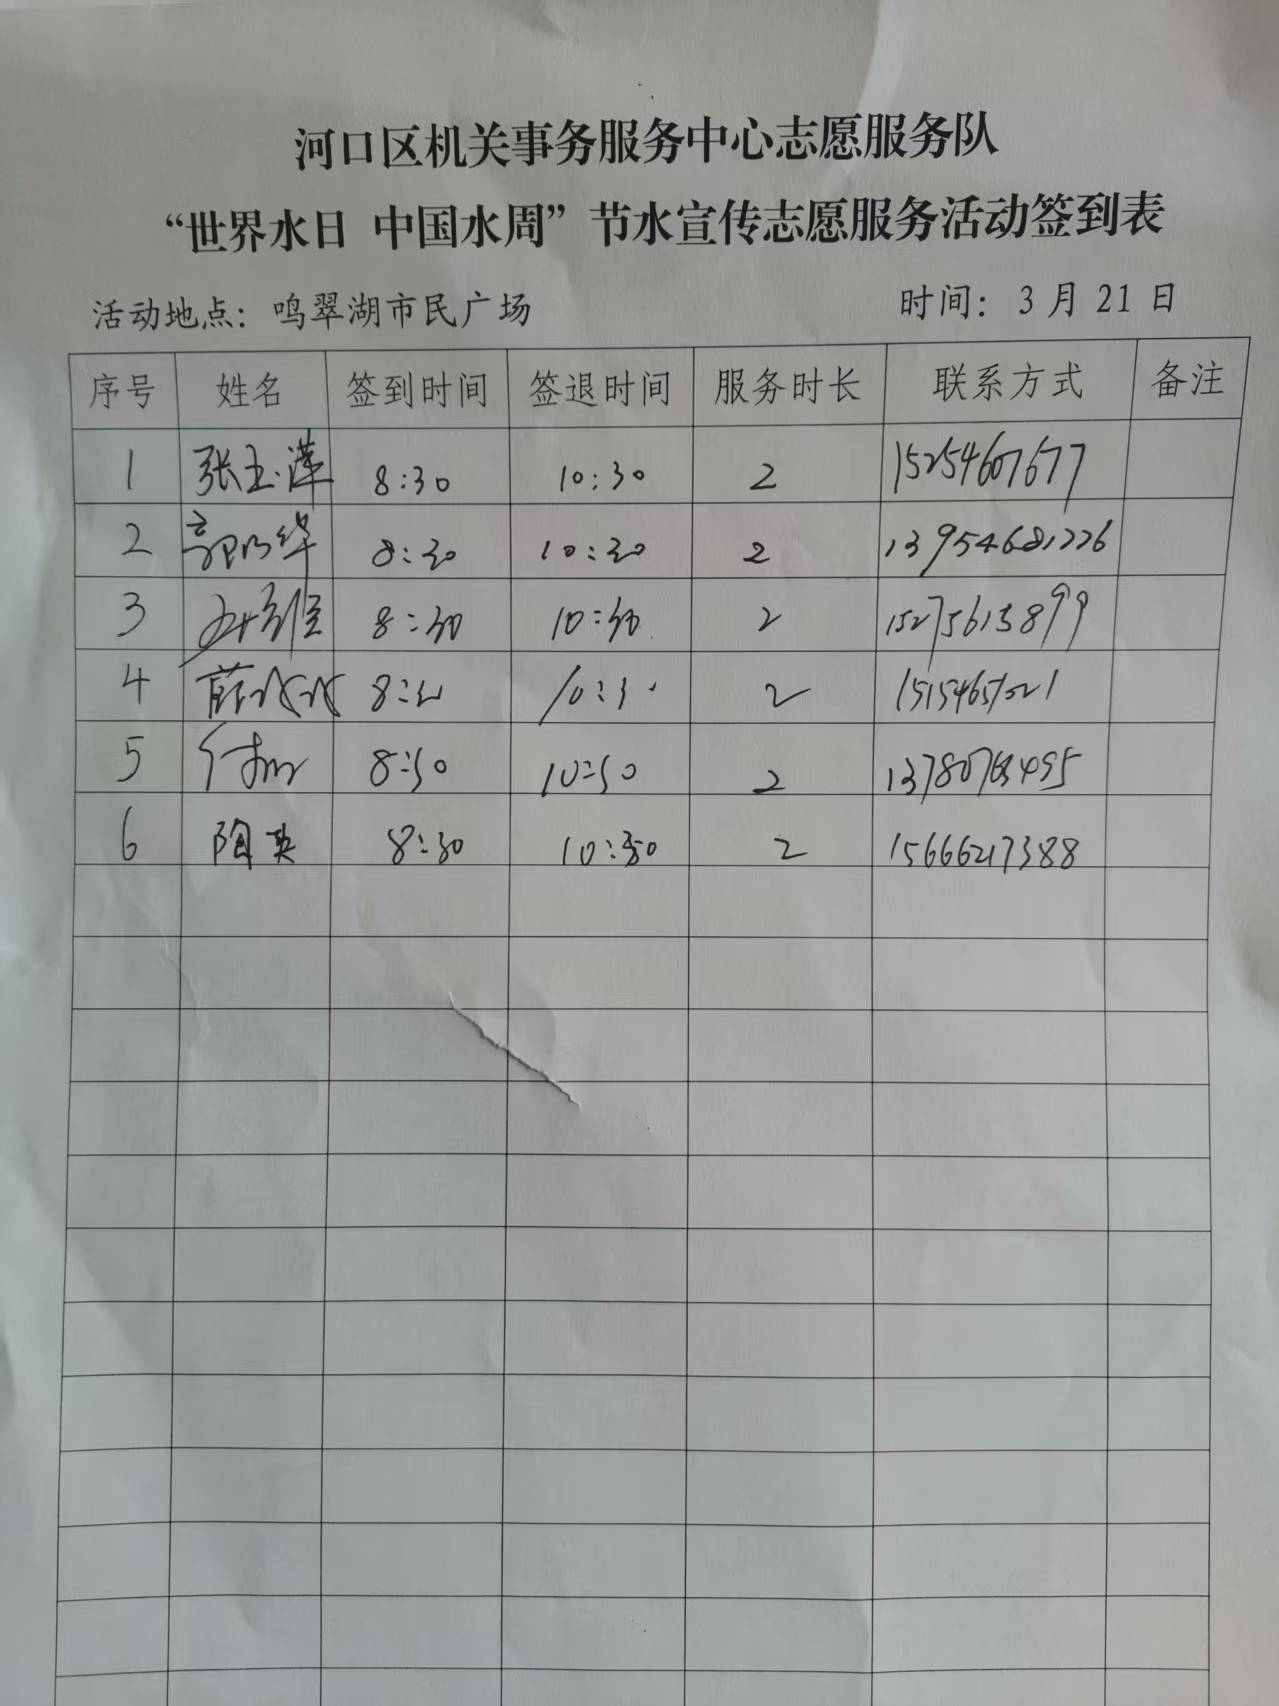 河口区机关事务服务中心志愿服务队
“世界水日 中国水周”节水宣传志愿服务活动签到表
活动地点：鸣翠湖市民广场 时间：3 月 21 日
序号 姓名 签到时间 签退时间 服务时长 联系方式 备注
1 张玉萍 8:30 10:30 2 15254607677
2 郭明华 8:30 10:30 2 13954681226
3 8:30 10:30 2 15275613899
4 薛冰冰 8:30 10:30 2
5 8:30 10:30 2
6 陶英 8:30 10:30 2 15666217388